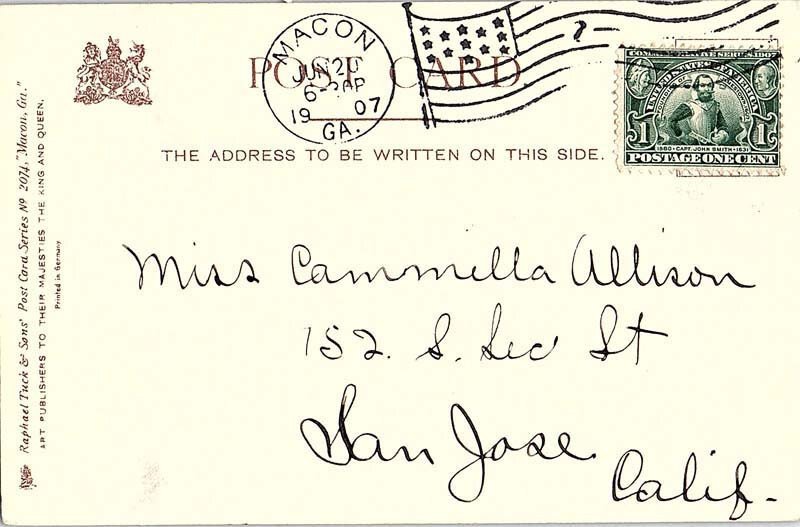 MACON
JUN 20
6-30P
1907
GA.
POST CARD
THE ADDRESS TO BE WRITTEN ON THIS SIDE.
COMMEMORATIVE SERIES 1907
UNITED STATES OF AMERICA
1 1
1580 • CAPT. JOHN SMITH • 1631
POSTAGE ONE CENT
Miss Cammella Allison
152. S. Sec St
San Jose
Calif-
Raphael Tuck & Sons' Post Card Series No 2074, "Macon, Ga."
ART PUBLISHERS TO THEIR MAJESTIES THE KING AND QUEEN.
Printed in Germany